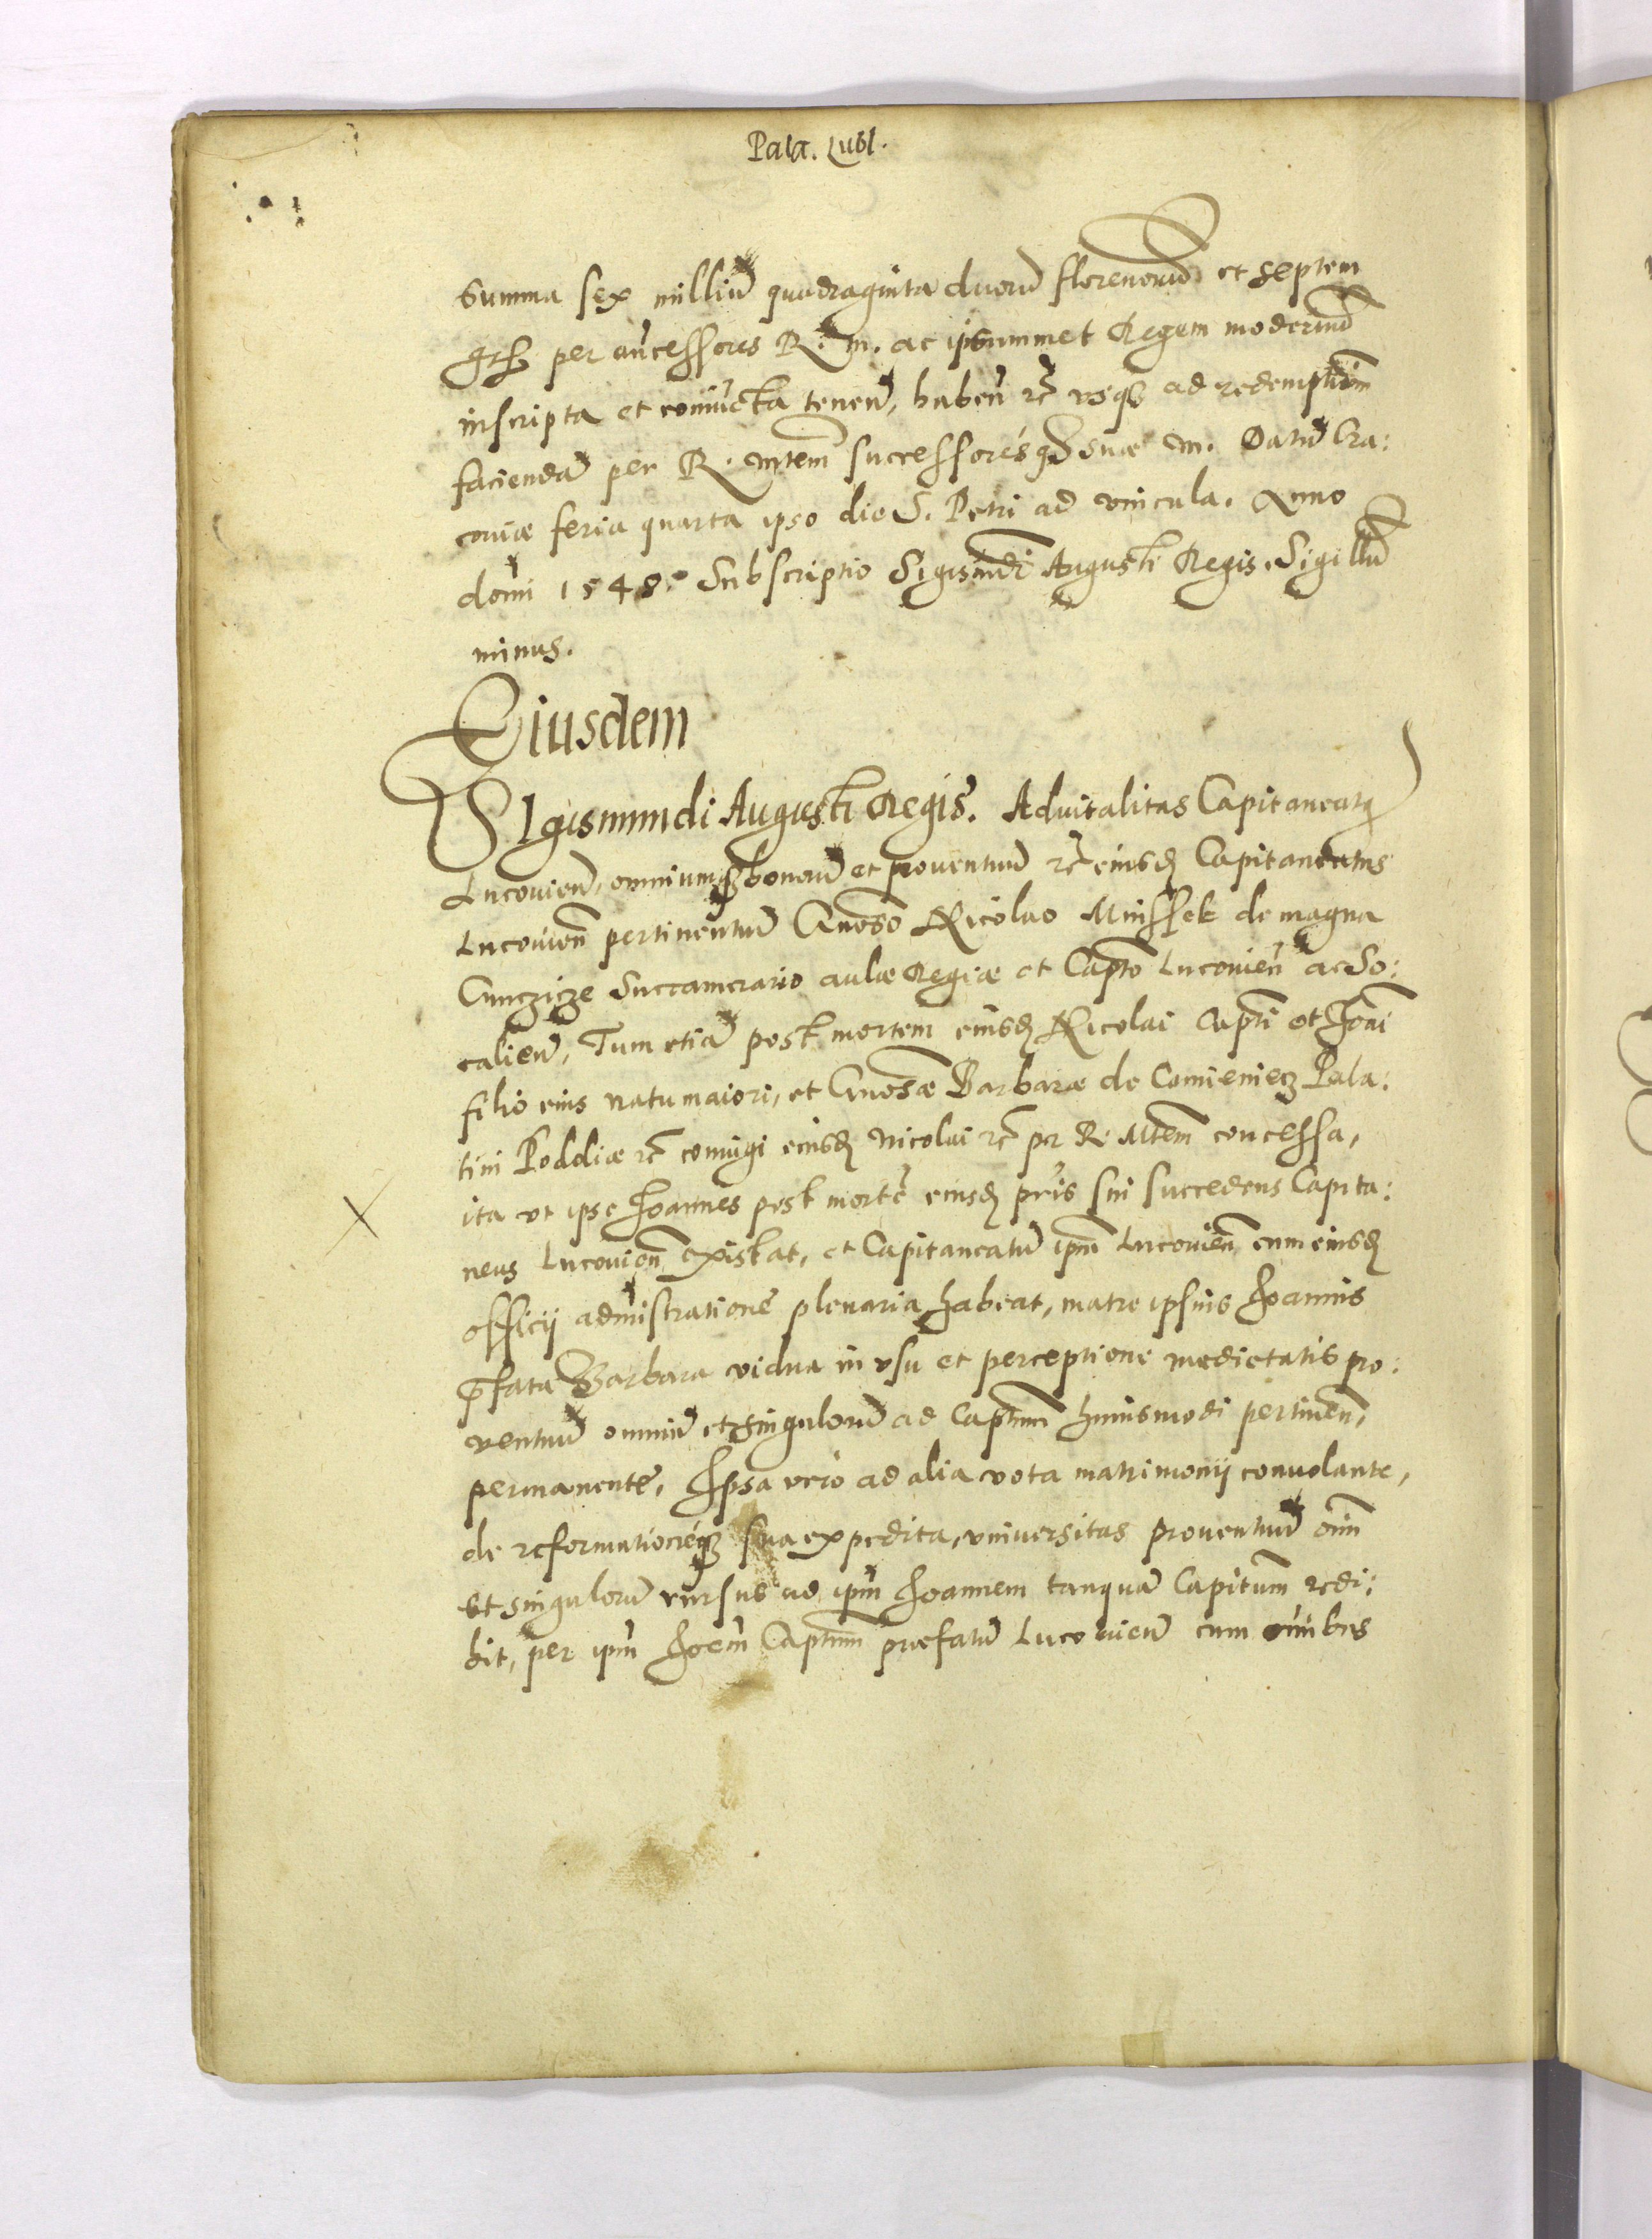 Pala. Lubl.
Summa sex milliũ quadraginta duorũ florenorũ et septem
per añcessores R. m. ac ipsummet Regem modernũ
inscripta et coniũcta tenend̃, habend̃ rc̃ vsq3 ad redemptiõm
faciendã per R. Mtem successorésq3 suae m. Datũ Cra:
coviæ feria quarta ipso die S. Petri ad vincula. Anno
domĩ 1548. Subscriptio Sigismdi Augusti Regis. Sigillũ
minus.
Eiusdem
SIgismundi Augusti Regis. Aduitalitas Capitaneatq
Lucovieñ, omniumq3 bonorũ et proventuũ rc̃ eiusd̃ Capitaneatus
Lucovieñ pertinentiũ Gñoso Nicolao Mnisseck de magna
Cunczicze Succamerario aulæ Regiæ et Capto Lucovieñ ac So:
calieñ, Tum etiã post mortem eiusd̃ Nicolai Capti et Joãi
filio eius natu maiori, et Gñosæ Barbaræ de Comieniecz Pala:
tini Podoliæ rc̃ coniugi eiusd̃ Nicolai rc̃ per R. Mtem concessa,
ita vt ipse Joannes post mortẽ eiusd̃ pr̃is sui succedens Capita:
neus Lucovieñ existat, et Capitaneatũ ipm̃ Lucovieñ cum eiusd̃
officij admĩstrationẽ plenaria habeat, matre ipsius Joannis
p̃fata Barbara vidua in vsu et perceptione medietatis pro:
ventuũ omniũ et singulorũ ad Captum huiusmodi pertineñ,
permanentẽ, Ipsa vero ad alia vota matrimonij convolante,
de reformationéq3 sua expedita, vniversitas proventuũ om̃
et singulorũ rursus ad ipm̃ Joannem tanquã Capitum redi:
bit, per ipm̃ Joem̃ Captum præfatũ Lucovieñ cum om̃ibus